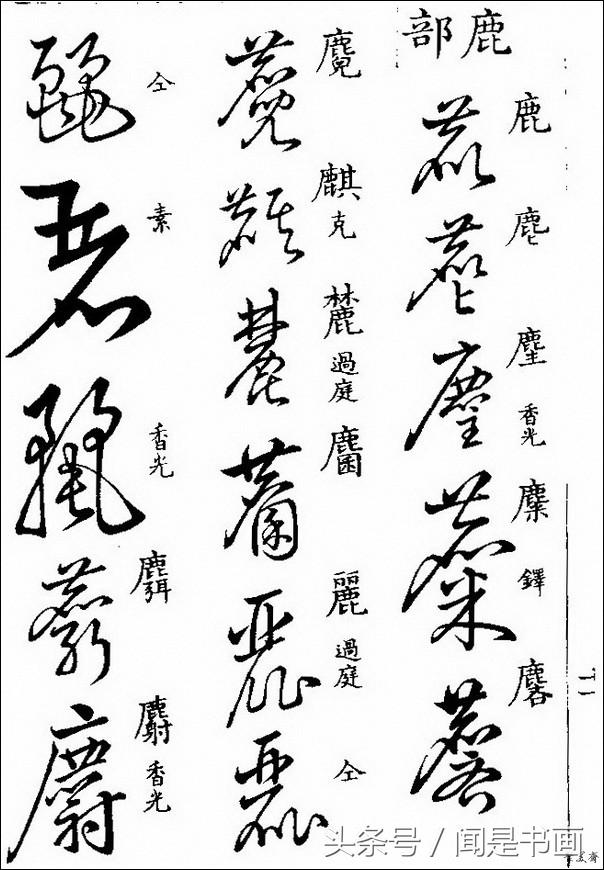 鹿部
鹿
麀
麈
香光
麋
鐸
麐
麑
麒
克
麓
過庭
麕
麗
過庭
仝
仝
素
香光
麛
麝
香光
头条号 / 闻是书画